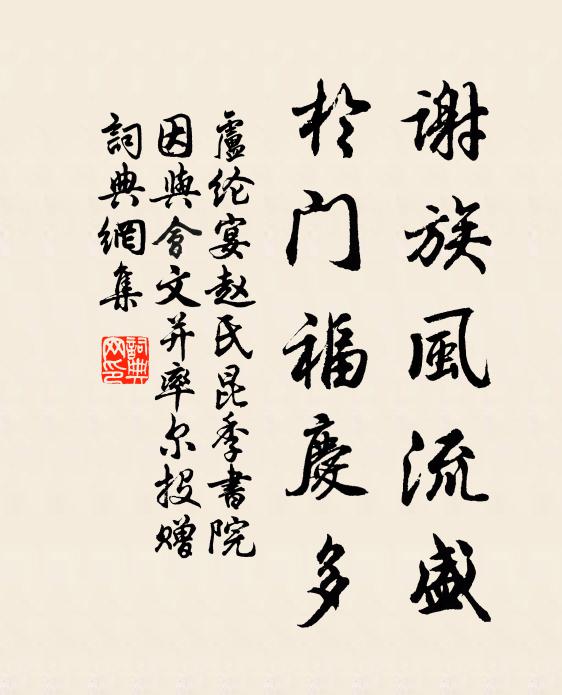 謝族風流盛
於門福慶多
盧纶宴赵氏昆季書院
因與會文并率尔投贈
詞典網集
詞典網印